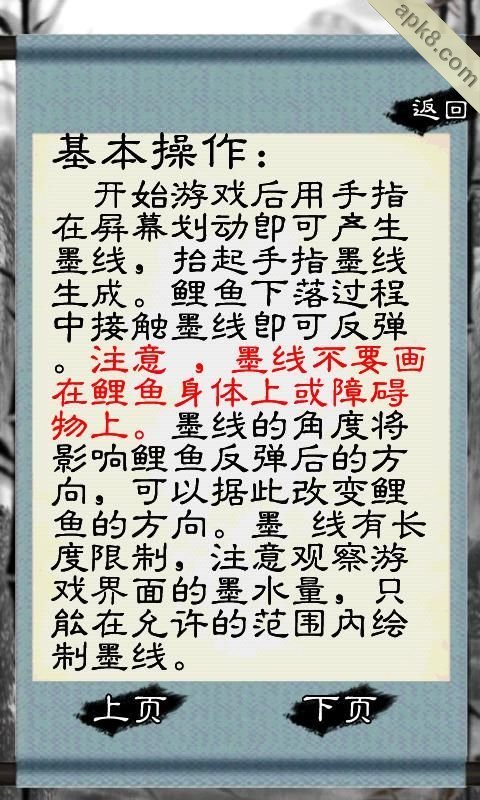 apk8.com
返回
基本操作：
开始游戏后用手指
在屏幕划动即可产生
墨线，抬起手指墨线
生成。鲤鱼下落过程
中接触墨线即可反弹
。注意 ，墨线不要画
在鲤鱼身体上或障碍
物上。墨线的角度将
影响鲤鱼反弹后的方
向，可以据此改变鲤
鱼的方向。墨 线有长
度限制，注意观察游
戏界面的墨水量，只
能在允许的范围内绘
制墨线。
上页
下页